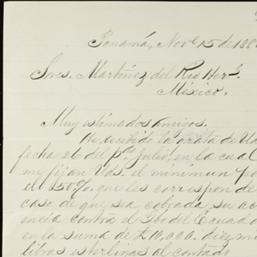 Panamá, Nov. 15 de 188
Sres. Martínez del Rio Hers.
México.
Muy estimados amigos.
He recibido la grata de Uds
fecha 26 del pº. Julio, en la cual
me fijan Uds. el minimun
el 50%. que les corresponde
caso de que sea cobrada su
contra el Gbo del Ecuador
en la suma de £10,000. diez mil
libras esterlinas al contado